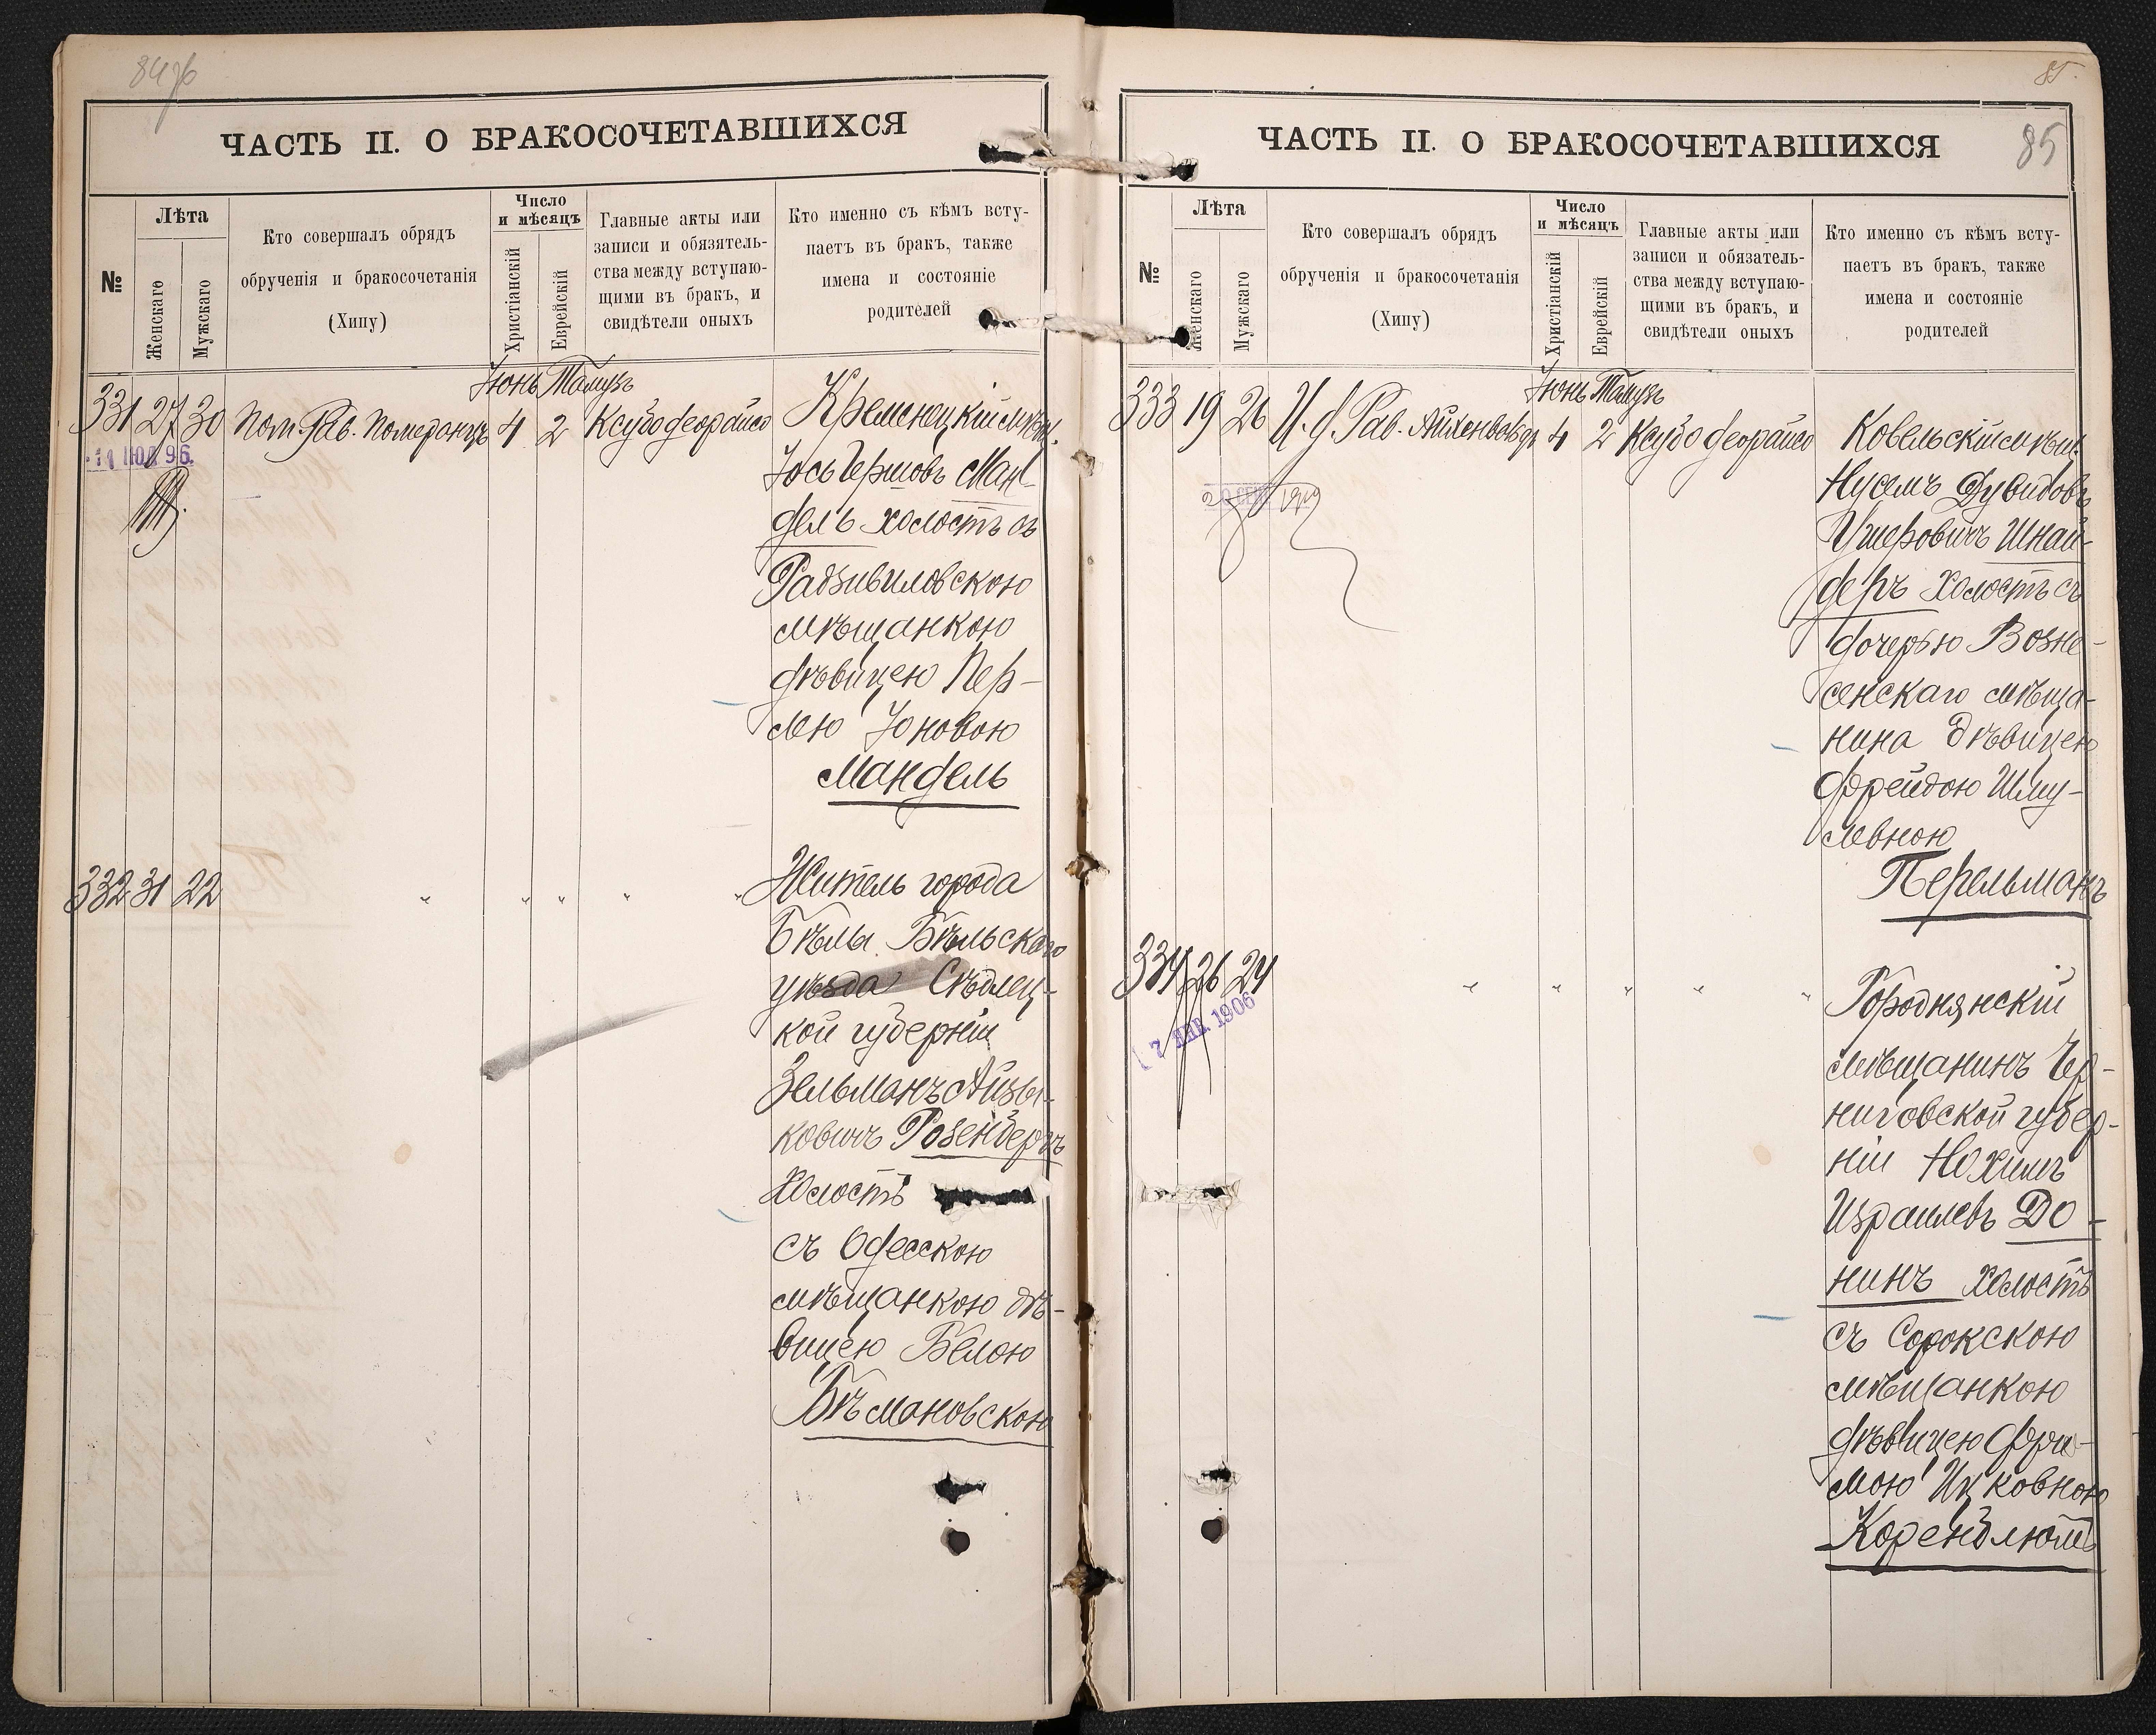 84об
ЧАСТЬ II. О БРАКОСОЧЕТАВШИХСЯ
№
Лѣта
Женскаго
Мужскаго
Кто совершалъ обрядъ
обрученія и бракосочетанія
(Хипу)
Число
и мѣсяцъ
Христіанскій
Еврейскій
Главные акты или
записи и обязятель-
ства между вступаю-
щими въ бракъ, и
свидѣтели оныхъ
Кто именно съ кѣмъ всту-
паетъ въ бракъ, также
имена и состояніе
родителей
Іюнь Тамузъ
331 27 30 Пом. Рав. Померанцъ 4 2 Ксубо деорайсо Кременецкій мѣщ.
96.
Іось Гершовъ Ман-
дель холостъ съ
Радзивиловскою
мѣщанкою
дѣвицею Пер-
лею Іоновою
Мандель
332 31 22 " " " " " Житель города
Бѣлы Бѣльскаго
уѣзда Сѣдлец-
кой губерніи
Зельманъ Айзы-
ковичъ Розенберъ
Холостъ
съ Одесскою
мѣщанкою дѣ-
вицею Белою
Бѣлмановскою
85.
85
ЧАСТЬ II. О БРАКОСОЧЕТАВШИХСЯ
№
Лѣта
Женскаго
Мужскаго
Кто совершалъ обрядъ
обрученія и бракосочетанія
(Хипу)
Число
и мѣсяцъ
Христіанскій
Еврейскій
Главные акты или
записи и обязатель-
ства между вступаю-
щими въ бракъ, и
свидѣтели оныхъ
Кто именно съ кѣмъ всту-
паетъ въ бракъ, также
имена и состояніе
родителей
Іюнь Тамузъ
333 19 26 И. д. Рав. Айхенвальдъ 4 2 Ксубо деорайсо Ковельскій мѣщ.
Нусемъ Дувидовъ
Ушеровичъ Шнай-
деръ холостъ съ
дочерью Возне-
сенскаго мѣща-
нина дѣвицею
Фрейдою Шму-
левною
Перельманъ
334 26 24 " " " " " Городнянскій
7 ЯНВ. 1906
мѣщанинъ Чер-
ниговской губер-
ніи Нохимъ
Израилевъ До-
нинъ холостъ
съ Сорокскою
мѣщанкою
дѣвицею Фри-
мою Ицковною
Коренблютъ